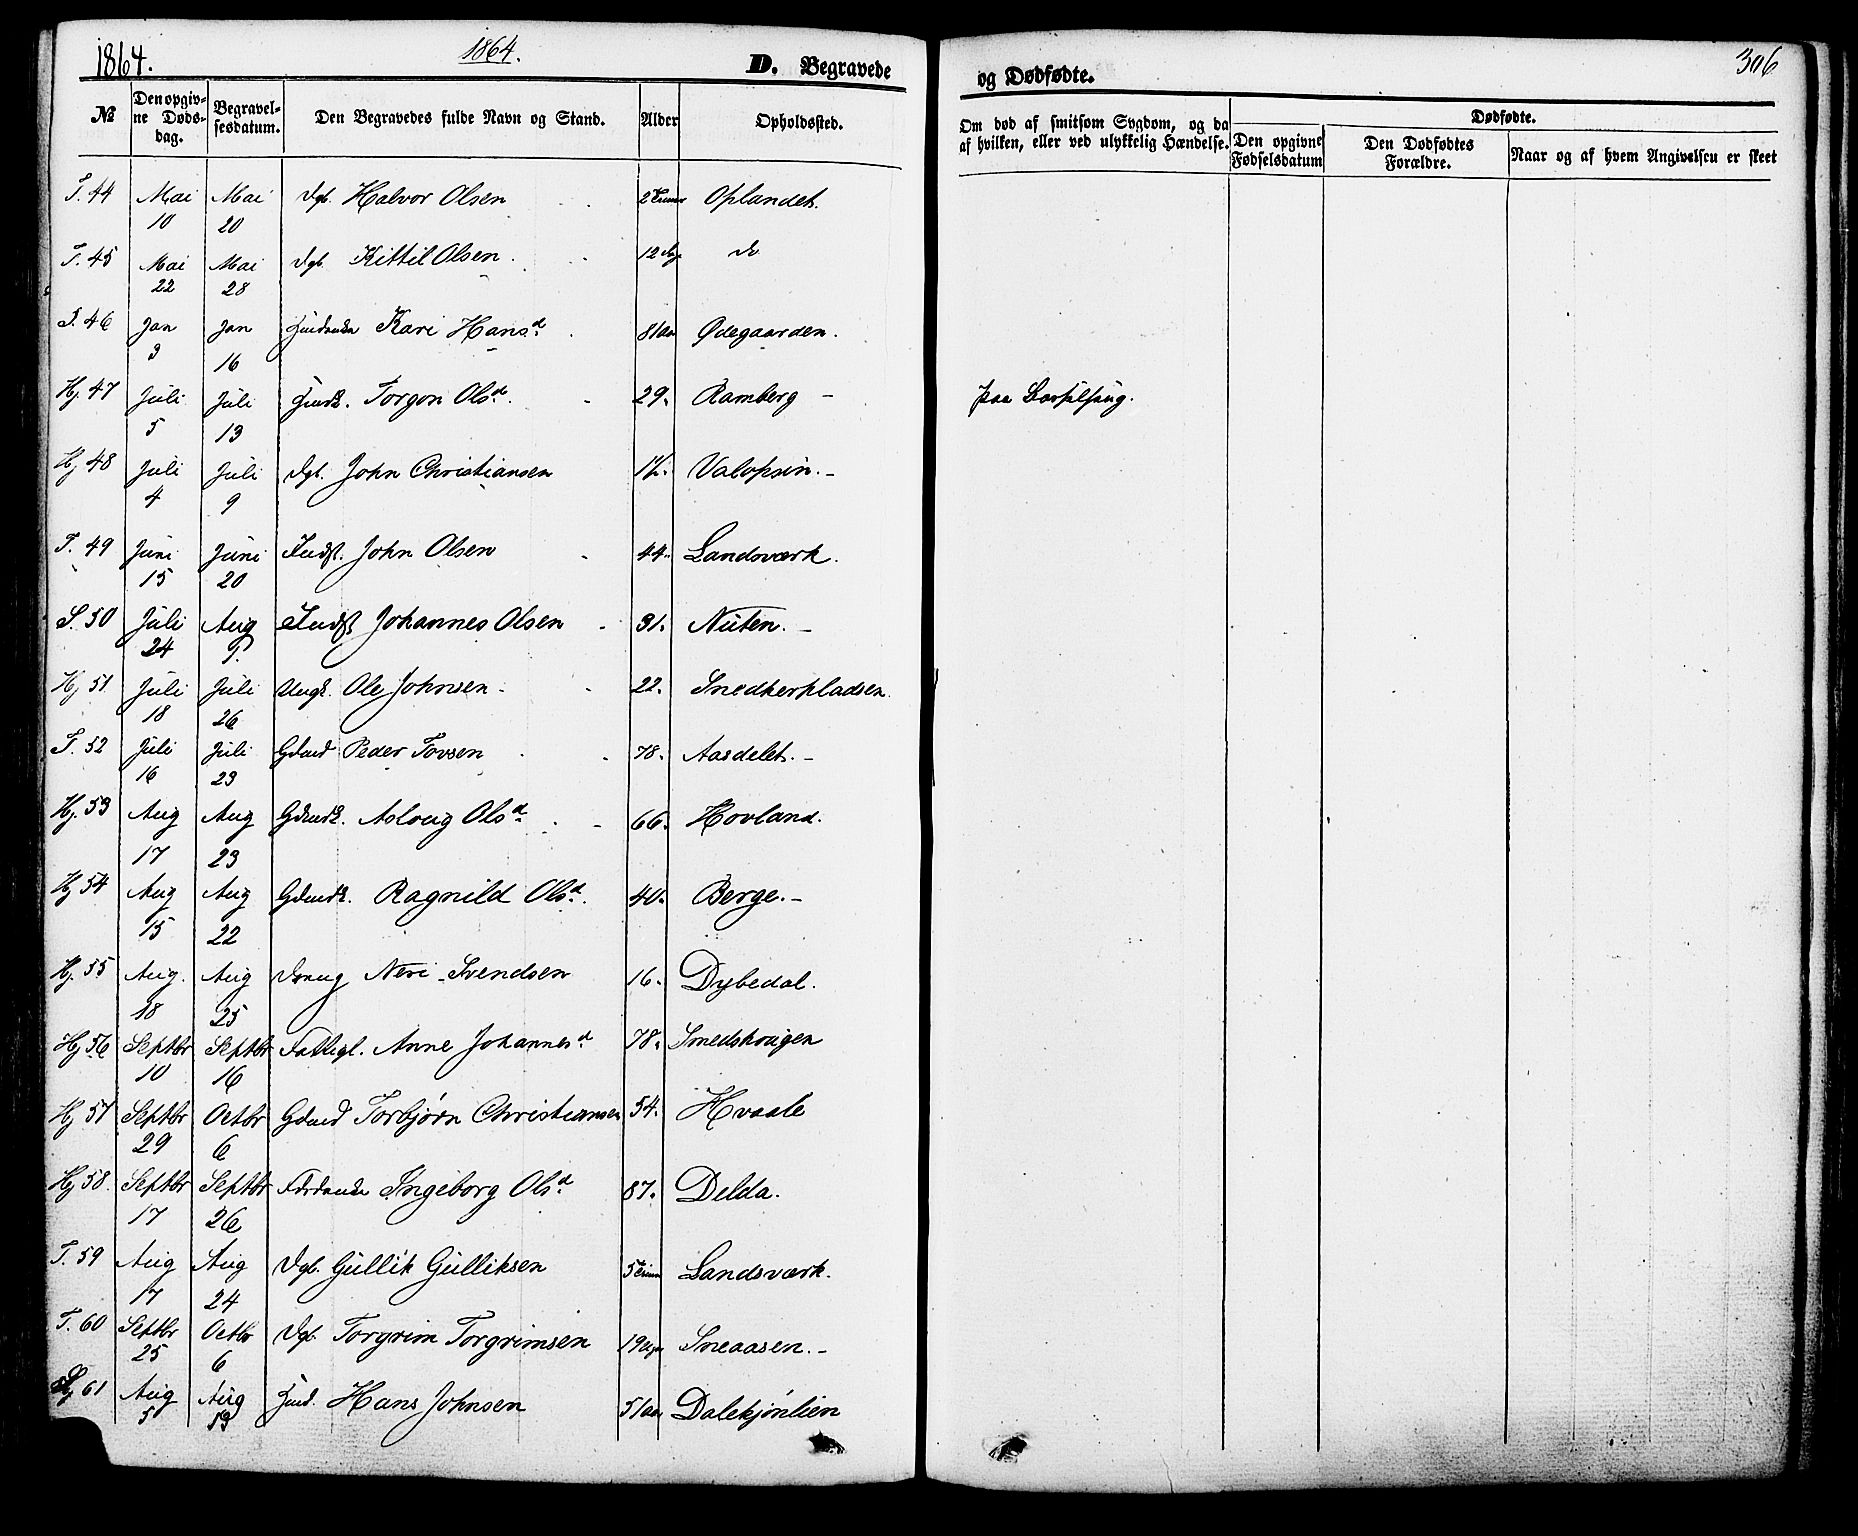 1864.
1864.
D. Begravede
og Dødfødte.
306
№
Den opgiv-
ne Døds-
dag.
Begravel-
sesdatum.
Den Begravedes fulde Navn og Stand.
Alder
Opholdssted.
Om død af smitsom Sygdom, og da
af hvilken, eller ved ulykkelig Hændelse.
Dødfødte.
Den opgivne
Fødselsdatum
Den Dødfødtes
Forældre.
Naar og af hvem Angivelsen er skeet
T. 44 Mai 10 Mai 20 Dgb. Halvor Olsen 2 Timer Oplandet.
T. 45 Mai 22 Mai 28 Dgb. Kittil Olsen. 12 Dag do
T. 46 Jan 3 Jan 16 Kari Hansd. 81 Aar Ødegaarden.
Hj. 47 Juli 5 Juli 13 Torgon Olsd. 29. Ramberg - paa Barselseng.
Hj 48 Juli 4 Juli 9 Dgb. John Christiansen Valopsin. -
T. 49 Juni 15 Juni 20 Indst. John Olsen 44. Landsværk.
S. 50 Juli 24 Aug 9. Indst Johannes Olsen 31. Nuten. -
Hj 51 Juli 18 Juli 26 Ungk. Ole Johnsen 22. Snedkerpladsen.
T. 52 Juli 16 Juli 23 Gdmd Peder Tovsen 78. Aasdelet. -
Hj. 53 Aug 17 Aug 23 Gdmdk. Asloug Olsd. 66. Hovland.
Hj 54 Aug 15 Aug 22 Gdmdk. Ragnild Olsd. 40. Berge. -
Hj. 55 Aug. 18 Aug 25 Dreng Neri Svendsen 16. Dybedal.
Hj 56 Septbr 10 Septbr 16 Fattigl. Anne Johannesd 78. Smedshougen
Hj 57 Septbr 29 Octbr 6 Gdmd Torbjørn Christiansen 54. Hvaale
Hj 58. Septbr 17 Septbr 26 Ingeborg Olsd. 87. Delda.
T. 59 Aug 17 Aug 24 Dgb. Gullik Gulliksen 5 Timer Landsværk.
T. 60 Septbr 25 Octbr 6 Dgb. Torgrim Torgrimsen Sneaasen. -
61 Aug 5 Aug 13 Hans Johnsen 51 Aar Dalekjønlien